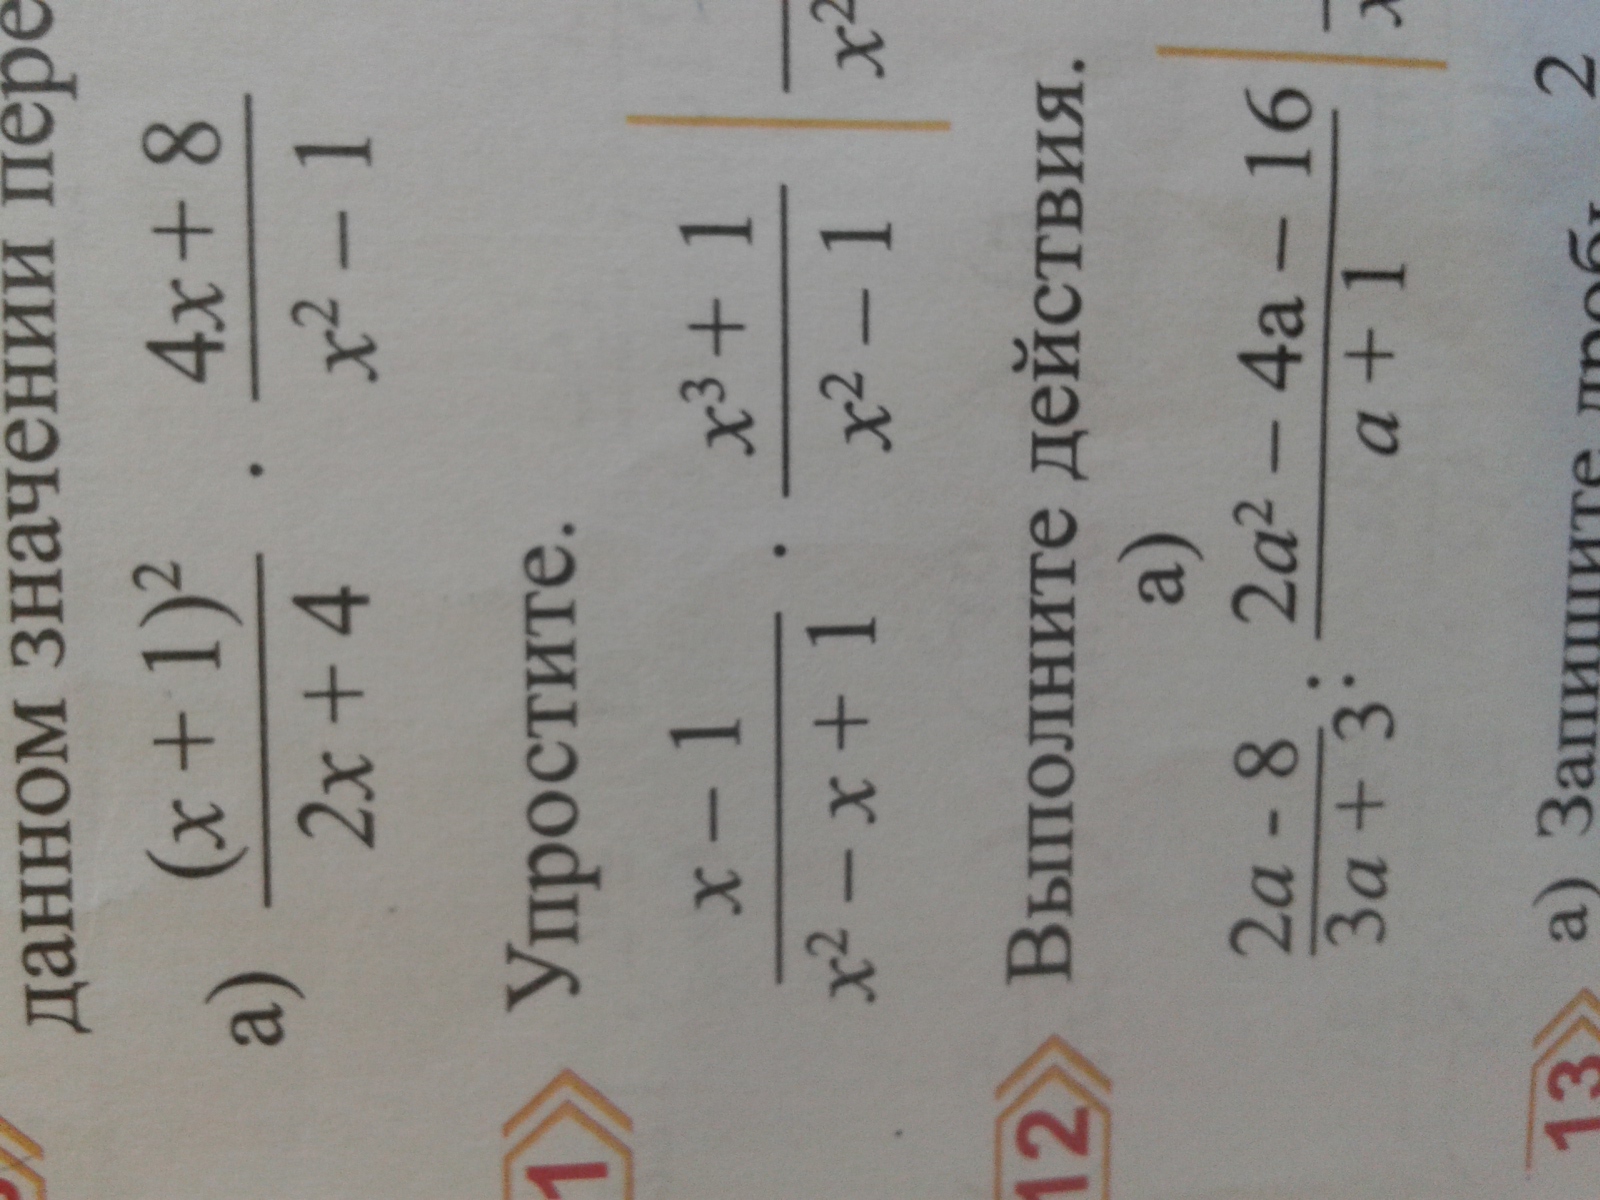 данном значении пере
а) (x + 1)² / (2x + 4) · (4x + 8) / (x² − 1)
1 Упростите.
(x − 1) / (x² − x + 1) · (x³ + 1) / (x² − 1)
x²
12 Выполните действия.
а)
(2a - 8) / (3a + 3) : (2a² − 4а − 16) / (a + 1)
x
13 а) Запишите дробь 2